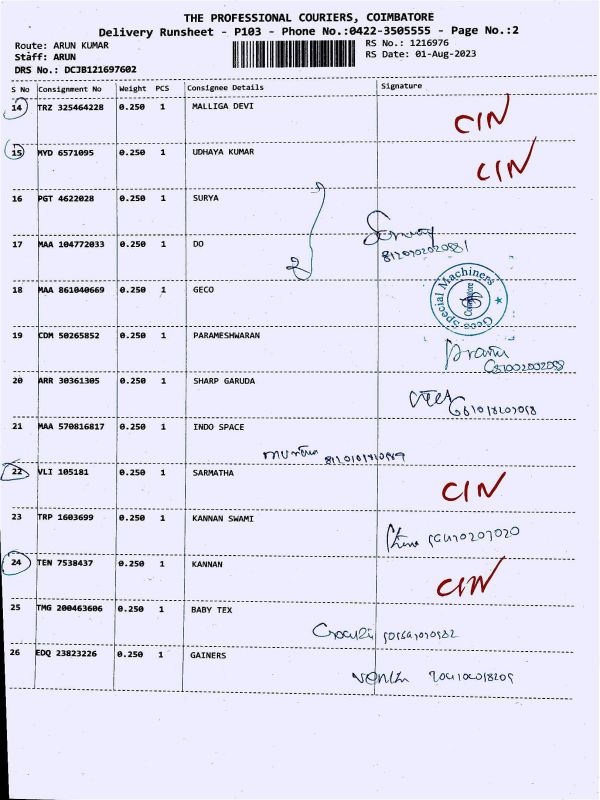 THE PROFESSIONAL COURIERS, COIMBATORE
Delivery Runsheet - P103 - Phone No.:0422-3505555 - Page No.:2
Route: ARUN KUMAR RS No.: 1216976
Staff: ARUN RS Date: 01-Aug-2023
DRS No.: DCJB121697602
S No Consignment No Weight PCS Consignee Details Signature
14 TRZ 325464228 0.250 1 MALLIGA DEVI CIN
15 MYD 6571095 0.250 1 UDHAYA KUMAR CIN
16 PGT 4622028 0.250 1 SURYA
17 MAA 104772033 0.250 1 DO
18 MAA 861040669 0.250 1 GECO
Geco Special Machiners
Coimbatore
19 CDM 50265852 0.250 1 PARAMESHWARAN
20 ARR 30361305 0.250 1 SHARP GARUDA
21 MAA 570816817 0.250 1 INDO SPACE
22 VLI 105181 0.250 1 SARMATHA CIN
23 TRP 1603699 0.250 1 KANNAN SWAMI
24 TEN 7538437 0.250 1 KANNAN CIN
25 TMG 200463606 0.250 1 BABY TEX
26 EDQ 23823226 0.250 1 GAINERS